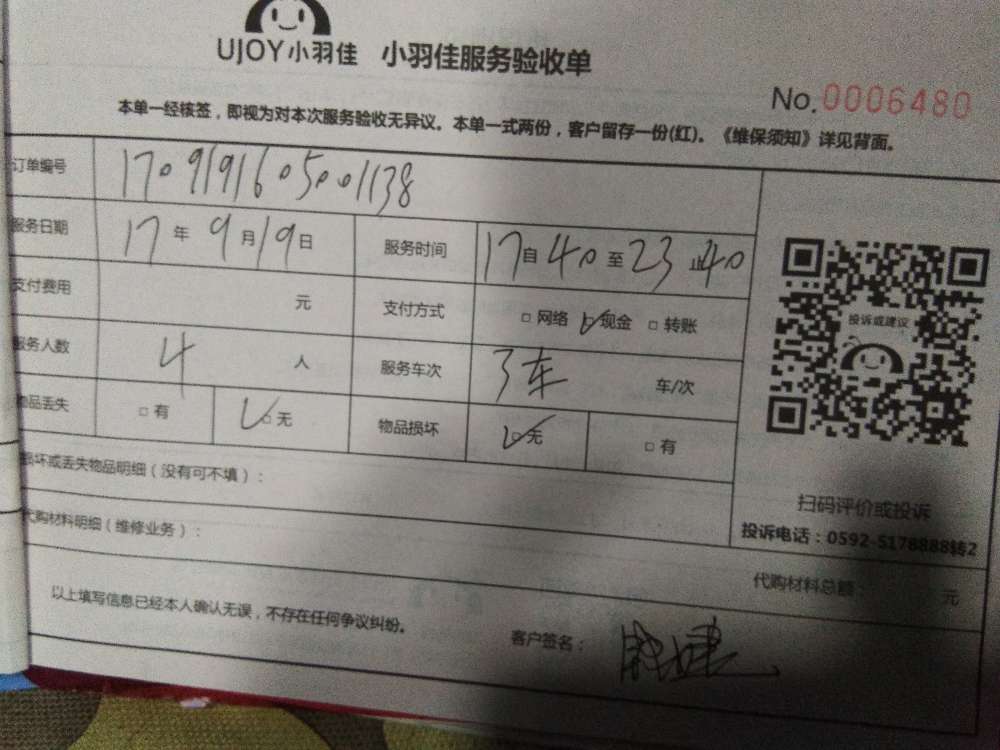 UJOY小羽佳 小羽佳服务验收单
No.0006480
本单一经核签，即视为对本次服务验收无异议。本单一式两份，客户留存一份(红)。《维保须知》详见背面。
订单编号 1709191605001138
服务日期 17年9月19日 服务时间 17自40至23止40
支付费用 元 支付方式 □网络 □现金 □转账
服务人数 4 人 服务车次 3车 车/次
物品丢失 □有 □无 物品损坏 □无 □有
投诉或建议
损坏或丢失物品明细（没有可不填）：
扫码评价或投诉
投诉电话：0592-5178888转2
代购材料明细（维修业务）：
代购材料总额： 元
以上填写信息已经本人确认无误，不存在任何争议纠纷。
客户签名：